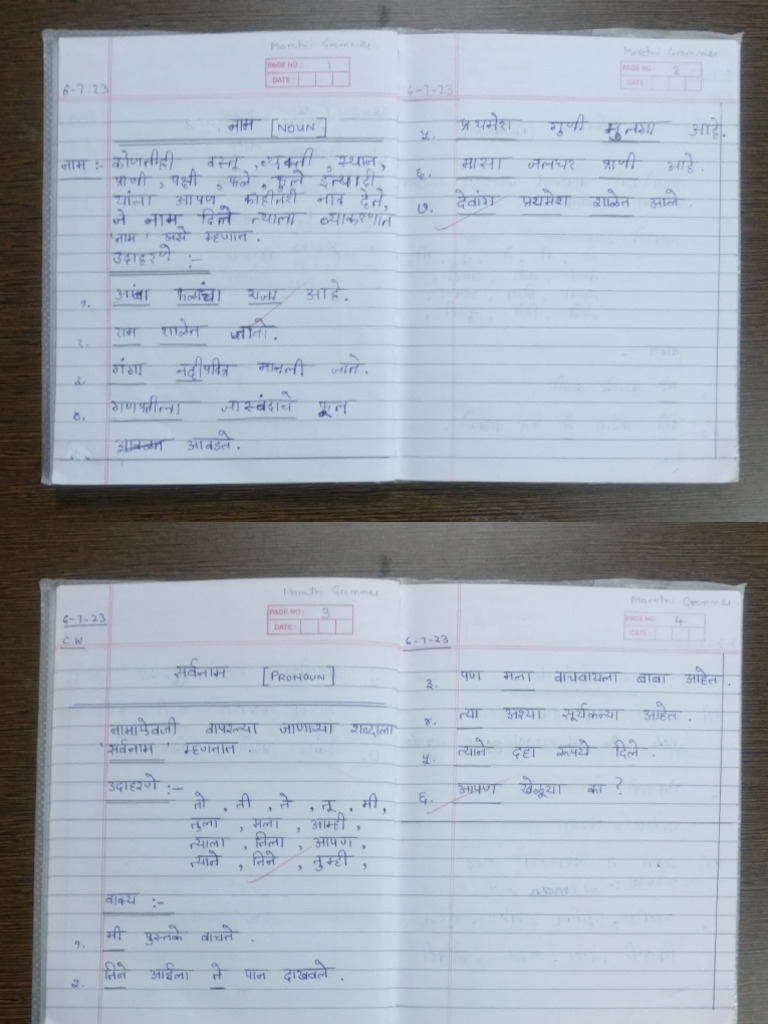 Marathi Grammer
PAGE NO: 1
DATE:
6-7-23
नाम [NOUN]
नाम :- कोणतीही वस्तू, व्यक्ती, स्थान,
प्राणी, पक्षी, फळे, फूले इत्यादी
यांना आपण काहीतरी नाव देते,
जे नाम दिले त्याला व्याकरणात
'नाम' असे म्हणात.
उदाहरणे :-
१. आंबा फळांचा राजा आहे.
२. राम शाळेत जातो.
३. गंगा नदीपवित्र मानली जाते.
४. गणपतीला जास्वंदाचे फूल
आवडते.
Marathi Grammer
PAGE NO: 2
DATE:
6-7-23
५. प्रथमेश गुणी मुलगा आहे.
६. मासा जलचर प्राणी आहे.
७. देवांग प्रथमेश शाळेत आले.
Marathi Grammer
PAGE NO: 3
DATE:
6-7-23
C.W
सर्वनाम [PRONOUN]
नामाऐवजी वापरल्या जाणाऱ्या शब्दाला
'सर्वनाम' म्हणतात.
उदाहरणे :-
तो, ती, ते, तू, मी,
तुला, मला, आम्ही,
त्याला, तिला, आपण,
त्याने, तिने, तुम्ही,
वाक्य :-
१. मी पुस्तके वाचते.
२. तिने आईला ते पान दाखवले.
Marathi Grammer
PAGE NO: 4
DATE:
6-7-23
३. पण मला वाचवायला बाबा आहेत.
४. त्या अश्या सूर्यकन्या आहेत.
५. त्याने दहा रूपये दिले.
६. आपण खेळूया का?